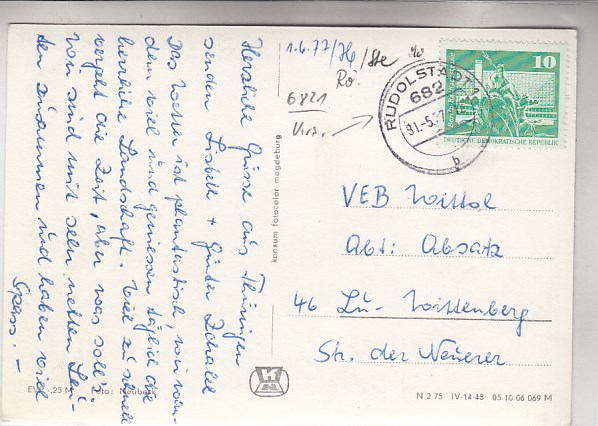 Herzliche Grüsse aus Thüringen
senden Lisbeth + Günter Zschabel
Das Wetter ist phantastisch, wir wan-
dern viel und geniessen täglich die
herrliche Landschaft. Viel zu schnell
vergeht die Zeit, aber was soll's.
Wir sind mit sehr netten Leu-
ten zusammen und haben viel
Spass. –
1.6.77/Hö/Ste
Rö.
6821
RUDOLSTADT
682
10
DEUTSCHE DEMOKRATISCHE REPUBLIK
b
konsum fotocolor magdeburg
VEB Wittol
Abt: Absatz
46 Lu-Wittenberg
Str. der Neuerer
EVP -,25 M Foto: Neubert
N 2 75 IV-14-48 05 10 06 069 M